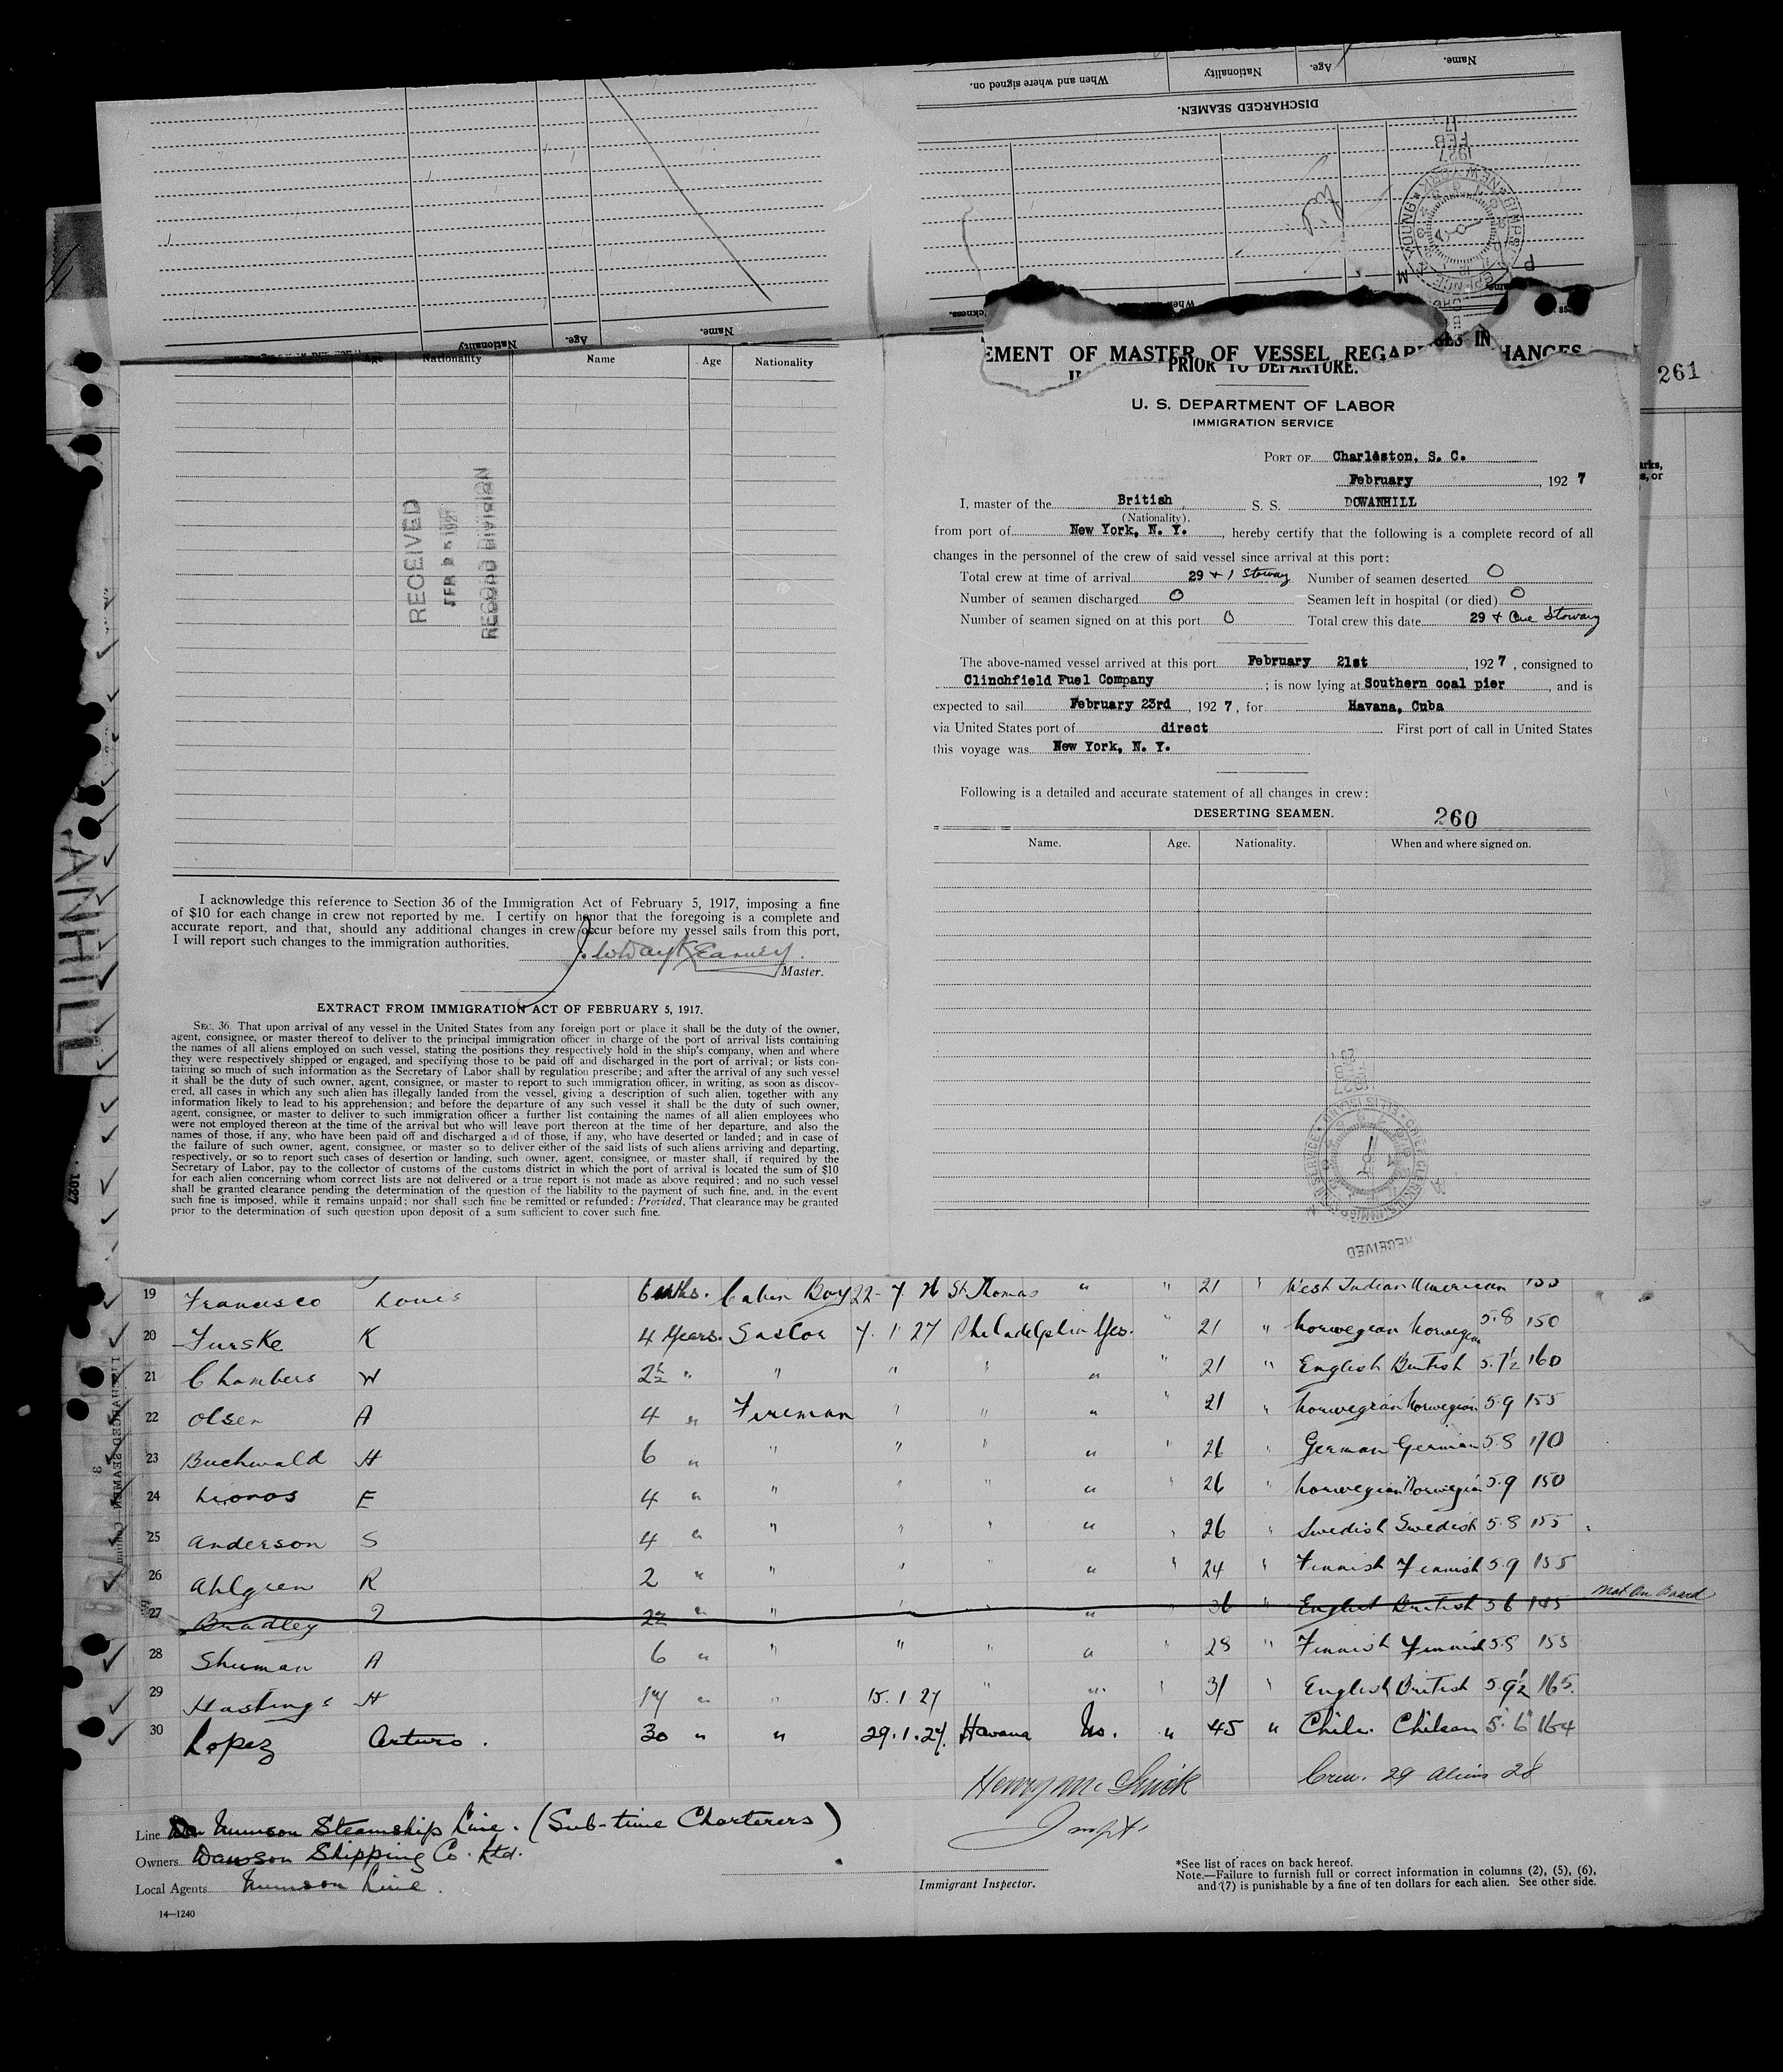 When and where signed on.
Nationality
Age.
Name.
DISCHARGED SEAMEN.
17
FEB
1927
Name.
Age.
Nationality
Nationality
Name
Age
Nationality
RECEIVED
RECORD DIVISION
EMENT OF MASTER OF VESSEL REGAR HANGES IN
PRIOR TO DEPARTURE.
261
U. S. DEPARTMENT OF LABOR
IMMIGRATION SERVICE
PORT OF Charleston, S. C.
February, 1927
I, master of the British S. S. DOWANHILL
(Nationality).
from port of New York, N. Y., hereby certify that the following is a complete record of all
changes in the personnel of the crew of said vessel since arrival at this port:
Total crew at time of arrival 29 + 1 Stoway Number of seamen deserted 0
Number of seamen discharged 0 Seamen left in hospital (or died) 0
Number of seamen signed on at this port 0 Total crew this date 29 + One Stoway
The above-named vessel arrived at this port February 21st, 1927, consigned to
Clinchfield Fuel Company; is now lying at Southern coal pier, and is
expected to sail February 23rd, 1927, for Havana, Cuba
via United States port of direct First port of call in United States
this voyage was New York, N. Y.
Following is a detailed and accurate statement of all changes in crew:
DESERTING SEAMEN.
260
Name. Age. Nationality. When and where signed on.
RECEIVED
ANHILL
I acknowledge this reference to Section 36 of the Immigration Act of February 5, 1917, imposing a fine
of $10 for each change in crew not reported by me. I certify on honor that the foregoing is a complete and
accurate report, and that, should any additional changes in crew occur before my vessel sails from this port,
I will report such changes to the immigration authorities.
Master.
EXTRACT FROM IMMIGRATION ACT OF FEBRUARY 5, 1917.
SEC. 36. That upon arrival of any vessel in the United States from any foreign port or place it shall be the duty of the owner,
agent, consignee, or master thereof to deliver to the principal immigration officer in charge of the port of arrival lists containing
the names of all aliens employed on such vessel, stating the positions they respectively hold in the ship's company, when and where
they were respectively shipped or engaged, and specifying those to be paid off and discharged in the port of arrival; or lists con-
taining so much of such information as the Secretary of Labor shall by regulation prescribe; and after the arrival of any such vessel
it shall be the duty of such owner, agent, consignee, or master to report to such immigration officer, in writing, as soon as discov-
ered, all cases in which any such alien has illegally landed from the vessel, giving a description of such alien, together with any
information likely to lead to his apprehension; and before the departure of any such vessel it shall be the duty of such owner,
agent, consignee, or master to deliver to such immigration officer a further list containing the names of all alien employees who
were not employed thereon at the time of the arrival but who will leave port thereon at the time of her departure, and also the
names of those, if any, who have been paid off and discharged and of those, if any, who have deserted or landed; and in case of
the failure of such owner, agent, consignee, or master so to deliver either of the said lists of such aliens arriving and departing,
respectively, or so to report such cases of desertion or landing, such owner, agent, consignee, or master shall, if required by the
Secretary of Labor, pay to the collector of customs of the customs district in which the port of arrival is located the sum of $10
for each alien concerning whom correct lists are not delivered or a true report is not made as above required; and no such vessel
shall be granted clearance pending the determination of the question of the liability to the payment of such fine, and, in the event
such fine is imposed, while it remains unpaid; nor shall such fine be remitted or refunded: Provided, That clearance may be granted
prior to the determination of such question upon deposit of a sum sufficient to cover such fine.
19 Francisco Louis 6 mths. Cabin Boy 22-7 26 St Thomas " " 21 " West Indian American 155
20 Furske K 4 Years. Sailor 7.1.27 Philadelphia Yes. 21 " Norwegian Norwegian 5.8 150
21 Chambers W 2½ " " " " " " 21 " English British 5.7½ 160
22 Olsen A 4 " Fireman " " " " 21 " Norwegian Norwegian 5.9 155
23 Buchwald H 6 " " " " " " 26 " German German 5.8 170
24 E 4 " " " " " " 26 Norwegian Norwegian 5.9 150
25 Anderson S 4 " " " " " " 26 " Swedish Swedish 5.8 155
26 Ahlgren R 2 " " " " " " 24 " Finnish Finnish 5.9 155
27 Bradley 22 " " " " " " 36 " English British 5 6 145 Not On Board
28 Shuman A 6 " " " " " " 28 " Finnish Finnish 5.8 155
29 Hastings H 14 " " 15.1.27 " " " 31 " English British 5.9½ 165.
30 Lopez Arturo. 30 " " 29.1.27. Havana No. " 45 " Chile. Chilean 5' 6" 164
Crew. 29 Aliens 28
Line Munson Steamship Line. (Sub-time Charterers)
Owners Dawson Shipping Co. Ltd.
Local Agents Munson Line.
Immigrant Inspector.
*See list of races on back hereof.
Note.—Failure to furnish full or correct information in columns (2), (5), (6),
and (7) is punishable by a fine of ten dollars for each alien. See other side.
14—1240